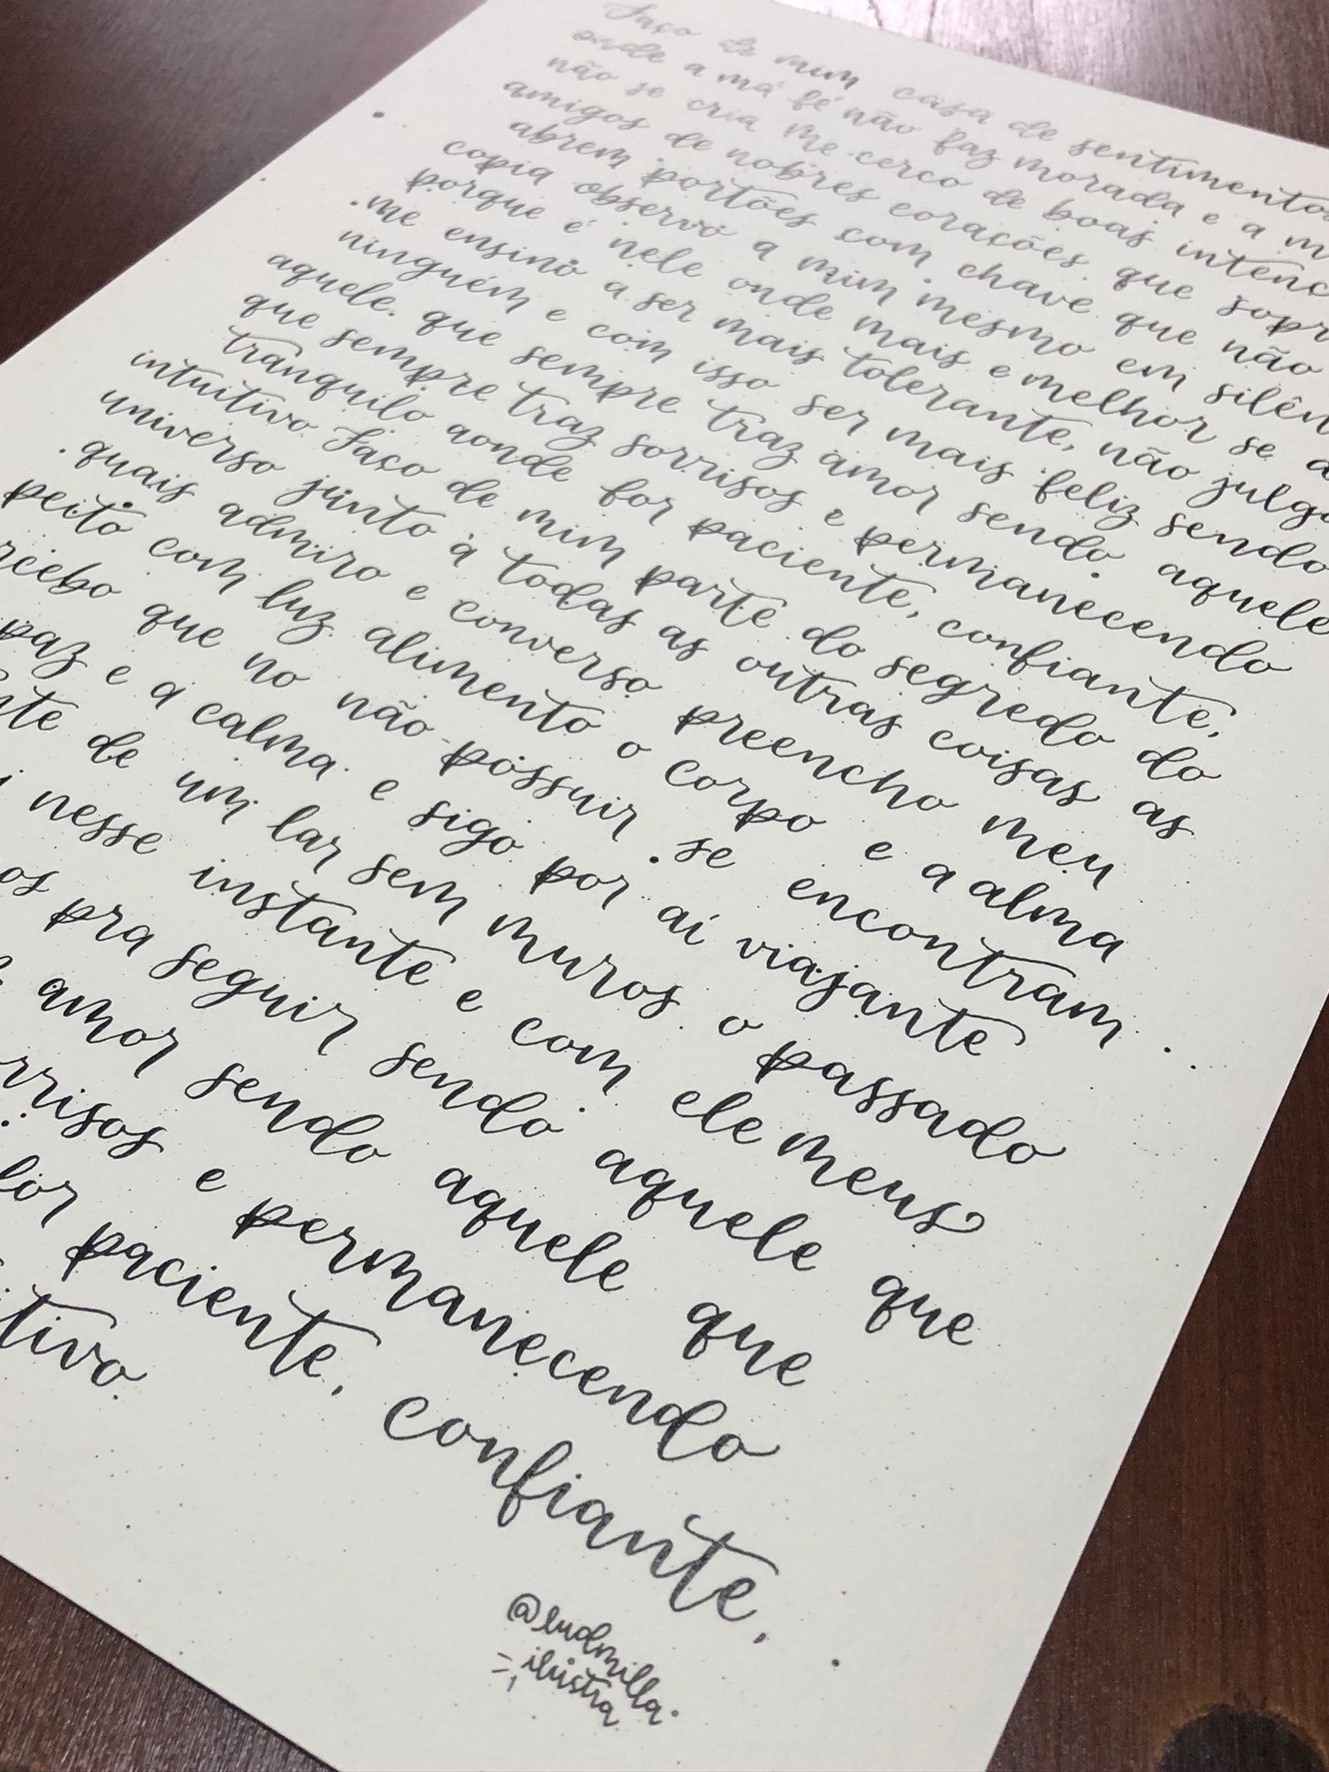 Faço de mim casa de sentimento
onde a má fé não faz morada e a m
não se cria me cerco de boas intenç
amigos de nobres corações que sopr
abrem portões com chave que não
copia observo a mim mesmo em silên
porque é nele onde mais e melhor se
me ensino a ser mais tolerante, não julga
ninguém e com isso ser mais feliz sendo
aquele que sempre traz amor sendo aquele
que sempre traz sorrisos e permanecendo
tranquilo aonde for paciente, confiante,
intuitivo Faço de mim parte do segredo do
universo junto à todas as outras coisas as
quais admiro e converso preencho meu
peito com luz alimento o corpo e a alma
rcebo que no não possuir se encontram
paz e a calma e sigo por aí viajante
nte de um lar sem muros o passado
i nesse instante e com ele meus
os pra seguir sendo aquele que
amor sendo aquele que
rrisos e permanecendo
for paciente, confiante,
itivo.
@ludmilla.
ilustra